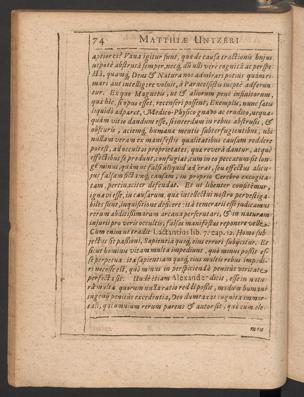 74 MATTHIÆ UNTZERI
aptiores? Vana igitur sunt, quæ de causa tractionis hujus
utpote abstrusâ semper, neq; dum ulli verè cognitâ ac perspe-
ctâ, quamq; Deus & Natura nos admirari potius quàm ri-
mari aut intelligere voluit, à Paracelsistis inepte adferun-
tur. Exquo Magnetis, ut & aliorum
quæ hîc, si opus esset, recenseri possent, Exemplis, nunc satis
liquidò adparet, Medico-Physico gnavo ac erudito, nequa-
quàm vitio dandum esse, si interdum in rebus abstrusis, &
obscuris, aciemq; humanæ mentis subterfugientibus, ubi
nullam veram ex manifestis qualitatibus causam reddere
potest, ad occultas proprietates, quæ reverâ dantur, ac qui
effectibus se produnt, confugiat, cum in eo peccatum sit lon-
gè minus, quàm ut falsis aliquid adferat, seu effectus alicu-
jus falsam fictamq; causam, in proprio Cerebro excogita-
tam, pertinaciter defendat. Et ut libenter confitemur,
ignavi esse, in causarum, quæ intellectui nostro perserviga-
biles sunt, inquisitione deficere: ita temerarii est prædicamus
rerum abditissimarum arcana perscrutari, & in naturam
injurii pro veris occultis, falsas manifestas reponere velle.
Cum enim ut tradit Lactantius lib. 7. cap. 12. Homo sub-
jectus sit passioni, Sapientia quoq; ejus errori subjicitur. Et
sicut hominis vitam multa impediunt, quò minus possit es-
se perpetua: ita sapientiam quoq; ejus multis rebus impedi-
ri necesse est, quò minus in perspiciendâ penitus veritate
perfecta sit. Unde etiam Alexander dicit, esse in natu-
râ multa quorum nulla ratio reddi possit, modum humani
ingenij penitus excedentia, Deo duntaxat cognita immor-
tali, qui omnium rerum parens & autor sit, quò cum ele-